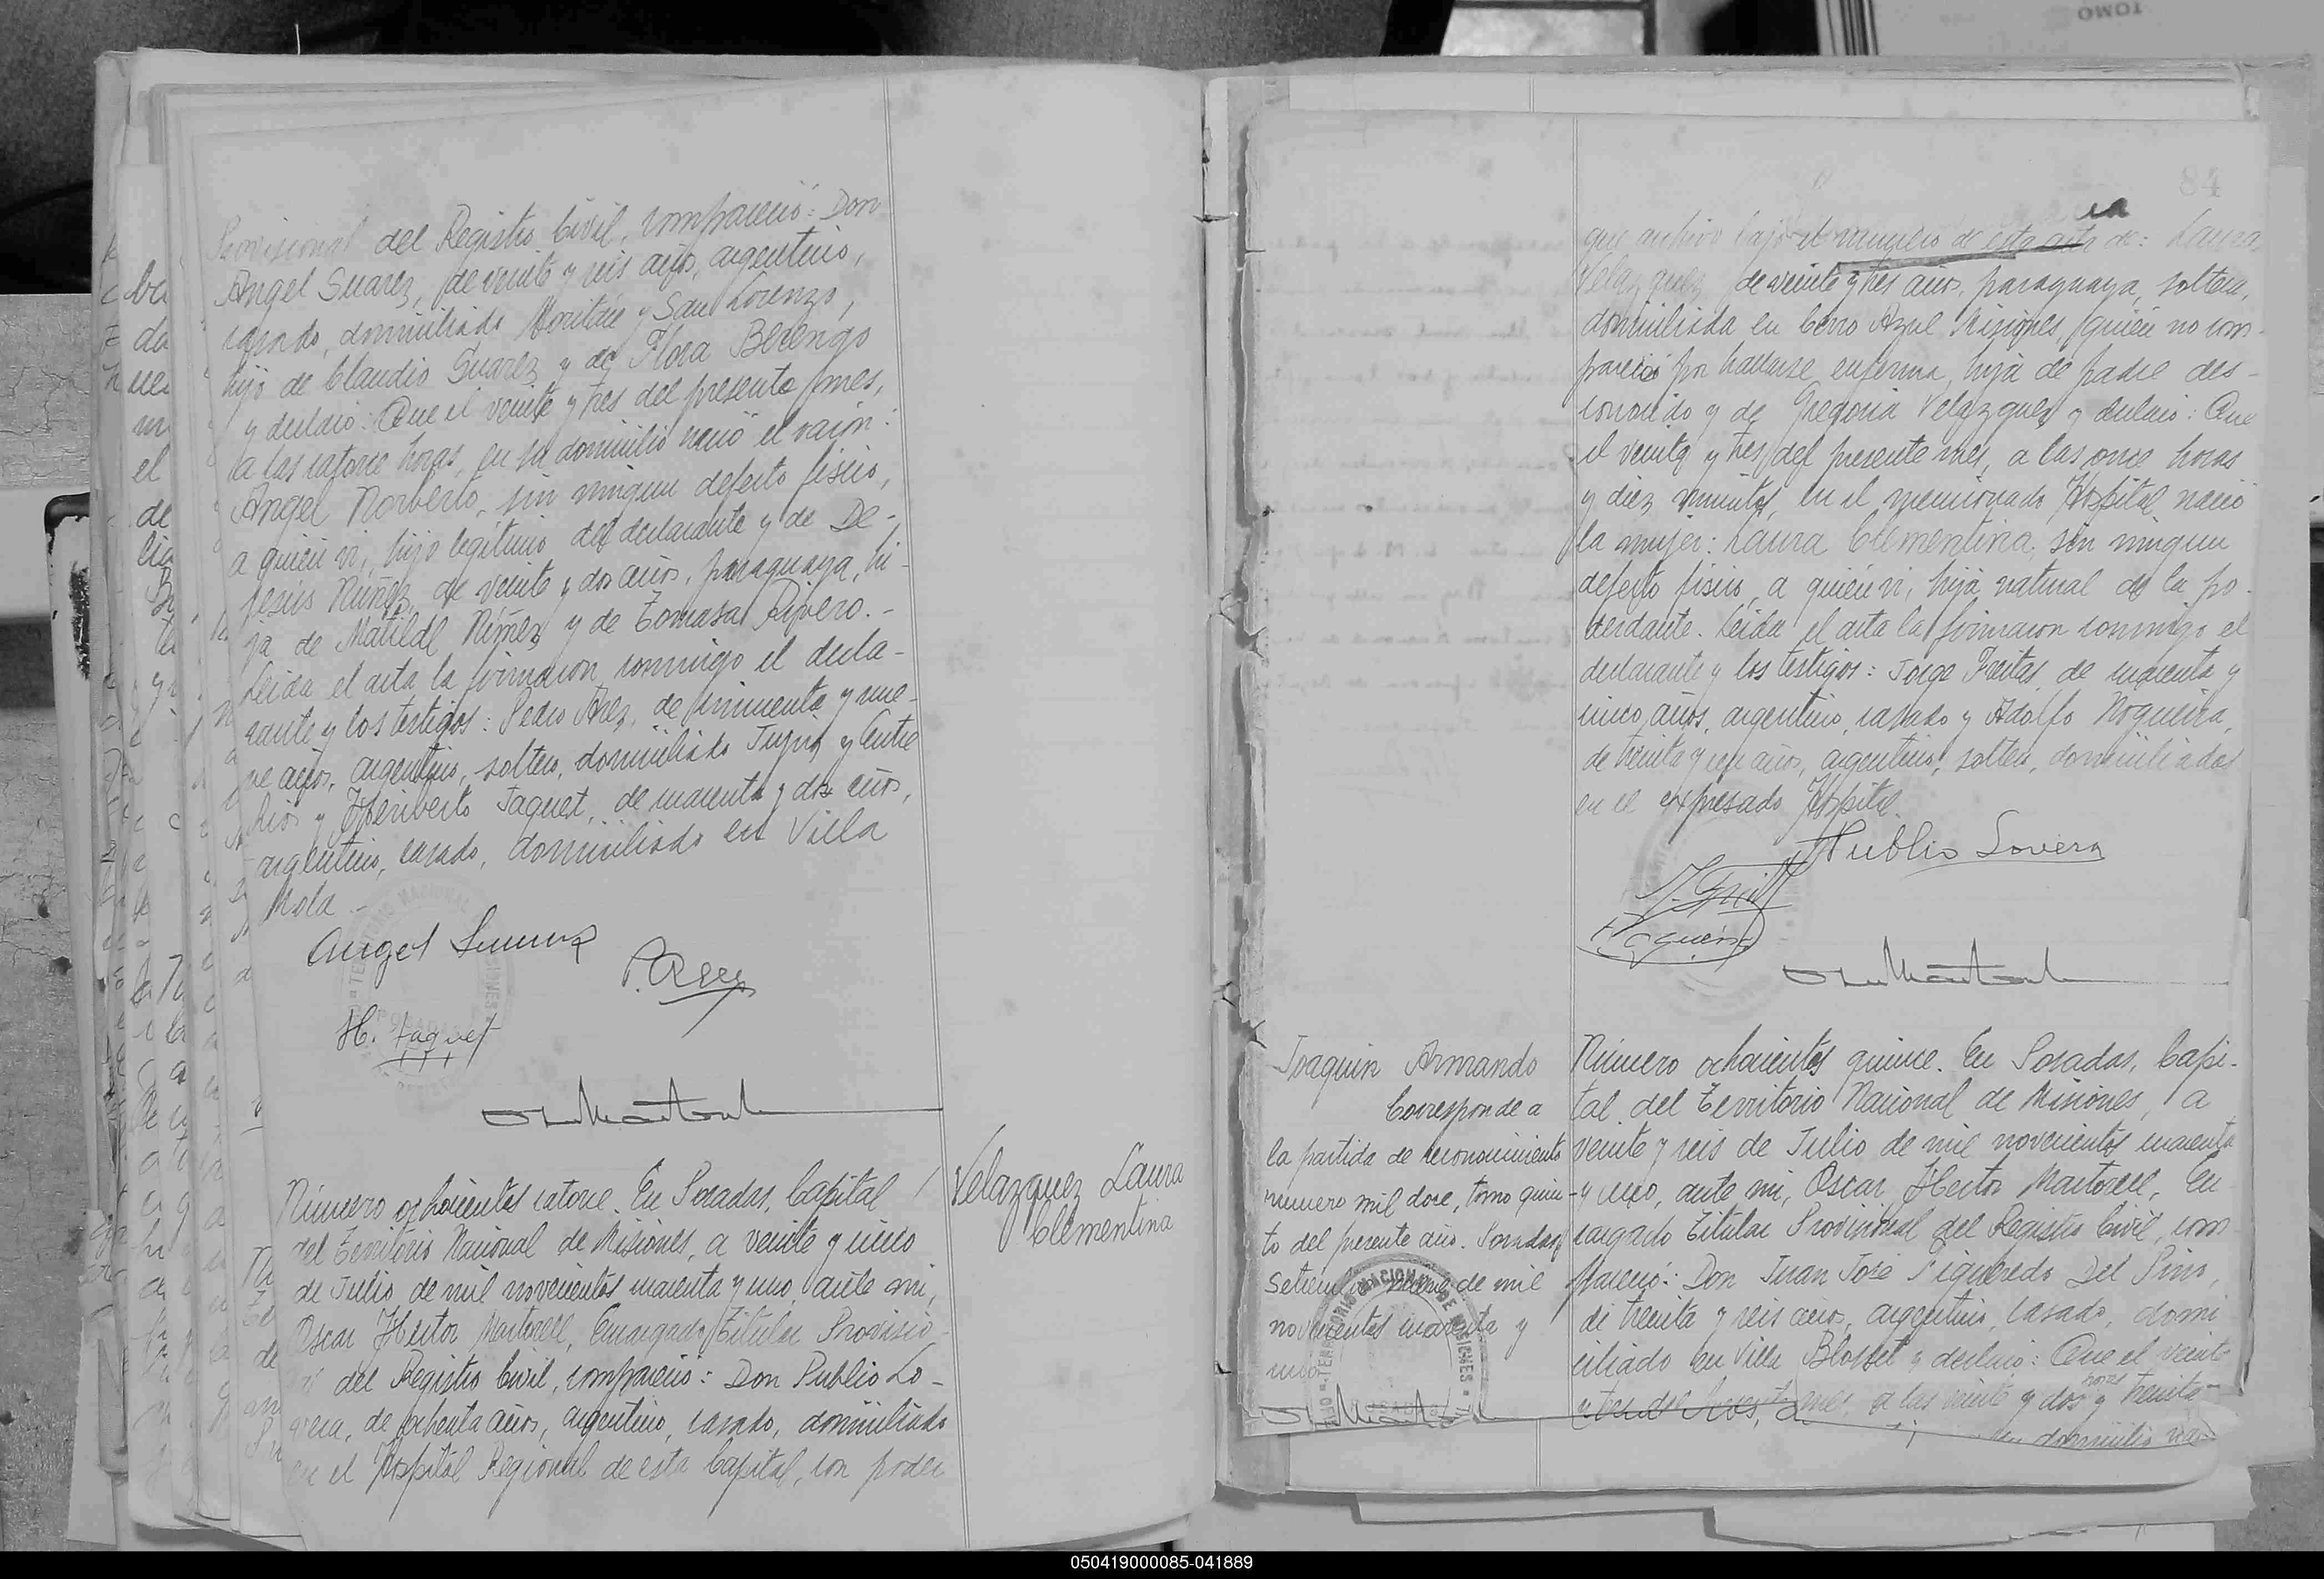 TOMO
Provisional del Registro Civil, compareció: Don
Angel Suarez, de veinte y seis años, argentino,
casado, domiciliado Moritán y San Lorenzo,
hijo de Claudio Suarez y de Flora Berengo
y declaró: Que el veinte y tres del presente mes,
a las catorce horas, en su domicilio nació el varón:
Angel Norberto, sin ningun defecto fisico,
a quién vi, hijo legítimo del declarante y de De-
jesús Nuñez, de veinte y dos años, paraguaya, hi-
ja de Matilde Núñez y de Tomasa Rivero.-
Leida el acta la firmaron conmigo el decla-
rante y los testigos: Pedro Arez, de cincuenta y nue-
ve años, argentino, soltero, domiciliado Jujuy y Entre
Rios y Heriberto Jaquet, de cuarenta y dos años,
argentino, casado, domiciliado en Villa
Mola.-
Angel Suarez
P. Arez
H. Jaquet
Número ochocientos catorce. En Posadas, Capital
del Territorio Nacional de Misiones, a veinte y cinco
de Julio de mil novecientos cuarenta y uno, ante mi,
Oscar Hector Martorell, Encargado Titular Provisio-
nal del Registro Civil, compareció: Don Publio Lo-
vera, de ochenta años, argentino, casado, domiciliado
en el Hospital Regional de esta Capital, con poder
Velazquez Laura
Clementina
84
que archivo bajo el numero de esta acta de: Laura
Velazquez, de veinte y tres años, paraguaya, soltera,
domiciliada en Cerro Azul Misiones, quién no com-
pareció por hallarse enferma, hija de padre des-
conocido y de Gregoria Velazquez y declaró: Que
el veinte y tres del presente mes, a las once horas
y diez minutos, en el mencionado Hospital nació
la mujer: Laura Clementina, sin ningun
defecto fisico, a quién vi, hija natural de la po-
derdante. Leida el acta la firmaron conmigo el
declarante y los testigos: Jorge Freitas, de cuarenta y
cinco años, argentino, casado y Adolfo Nogueira,
de treinta y un años, argentino, soltero, domiciliados
en el expresado Hospital.
Publio Lovera
Joaquin Armando
Corresponde a
la partida de reconocimiento
numero mil doce, tomo quin-
to del presente año. Posadas,
Setiembre nueve de mil
novecientos cuarenta y
uno.
Número ochocientos quince. En Posadas, Capi-
tal del Territorio Nacional de Misiones, a
veinte y seis de Julio de mil novecientos cuarenta
y uno, ante mi, Oscar Hector Martorell, En-
cargado Titular Provisional del Registro Civil, com-
pareció: Don Juan José Figueredo Del Pino,
de treinta y seis años, argentino, casado, domi-
ciliado en Villa Blosset y declaró: Que el veinte
mes, a las veinte y dos horas y treinta
domicilio
050419000085-041889